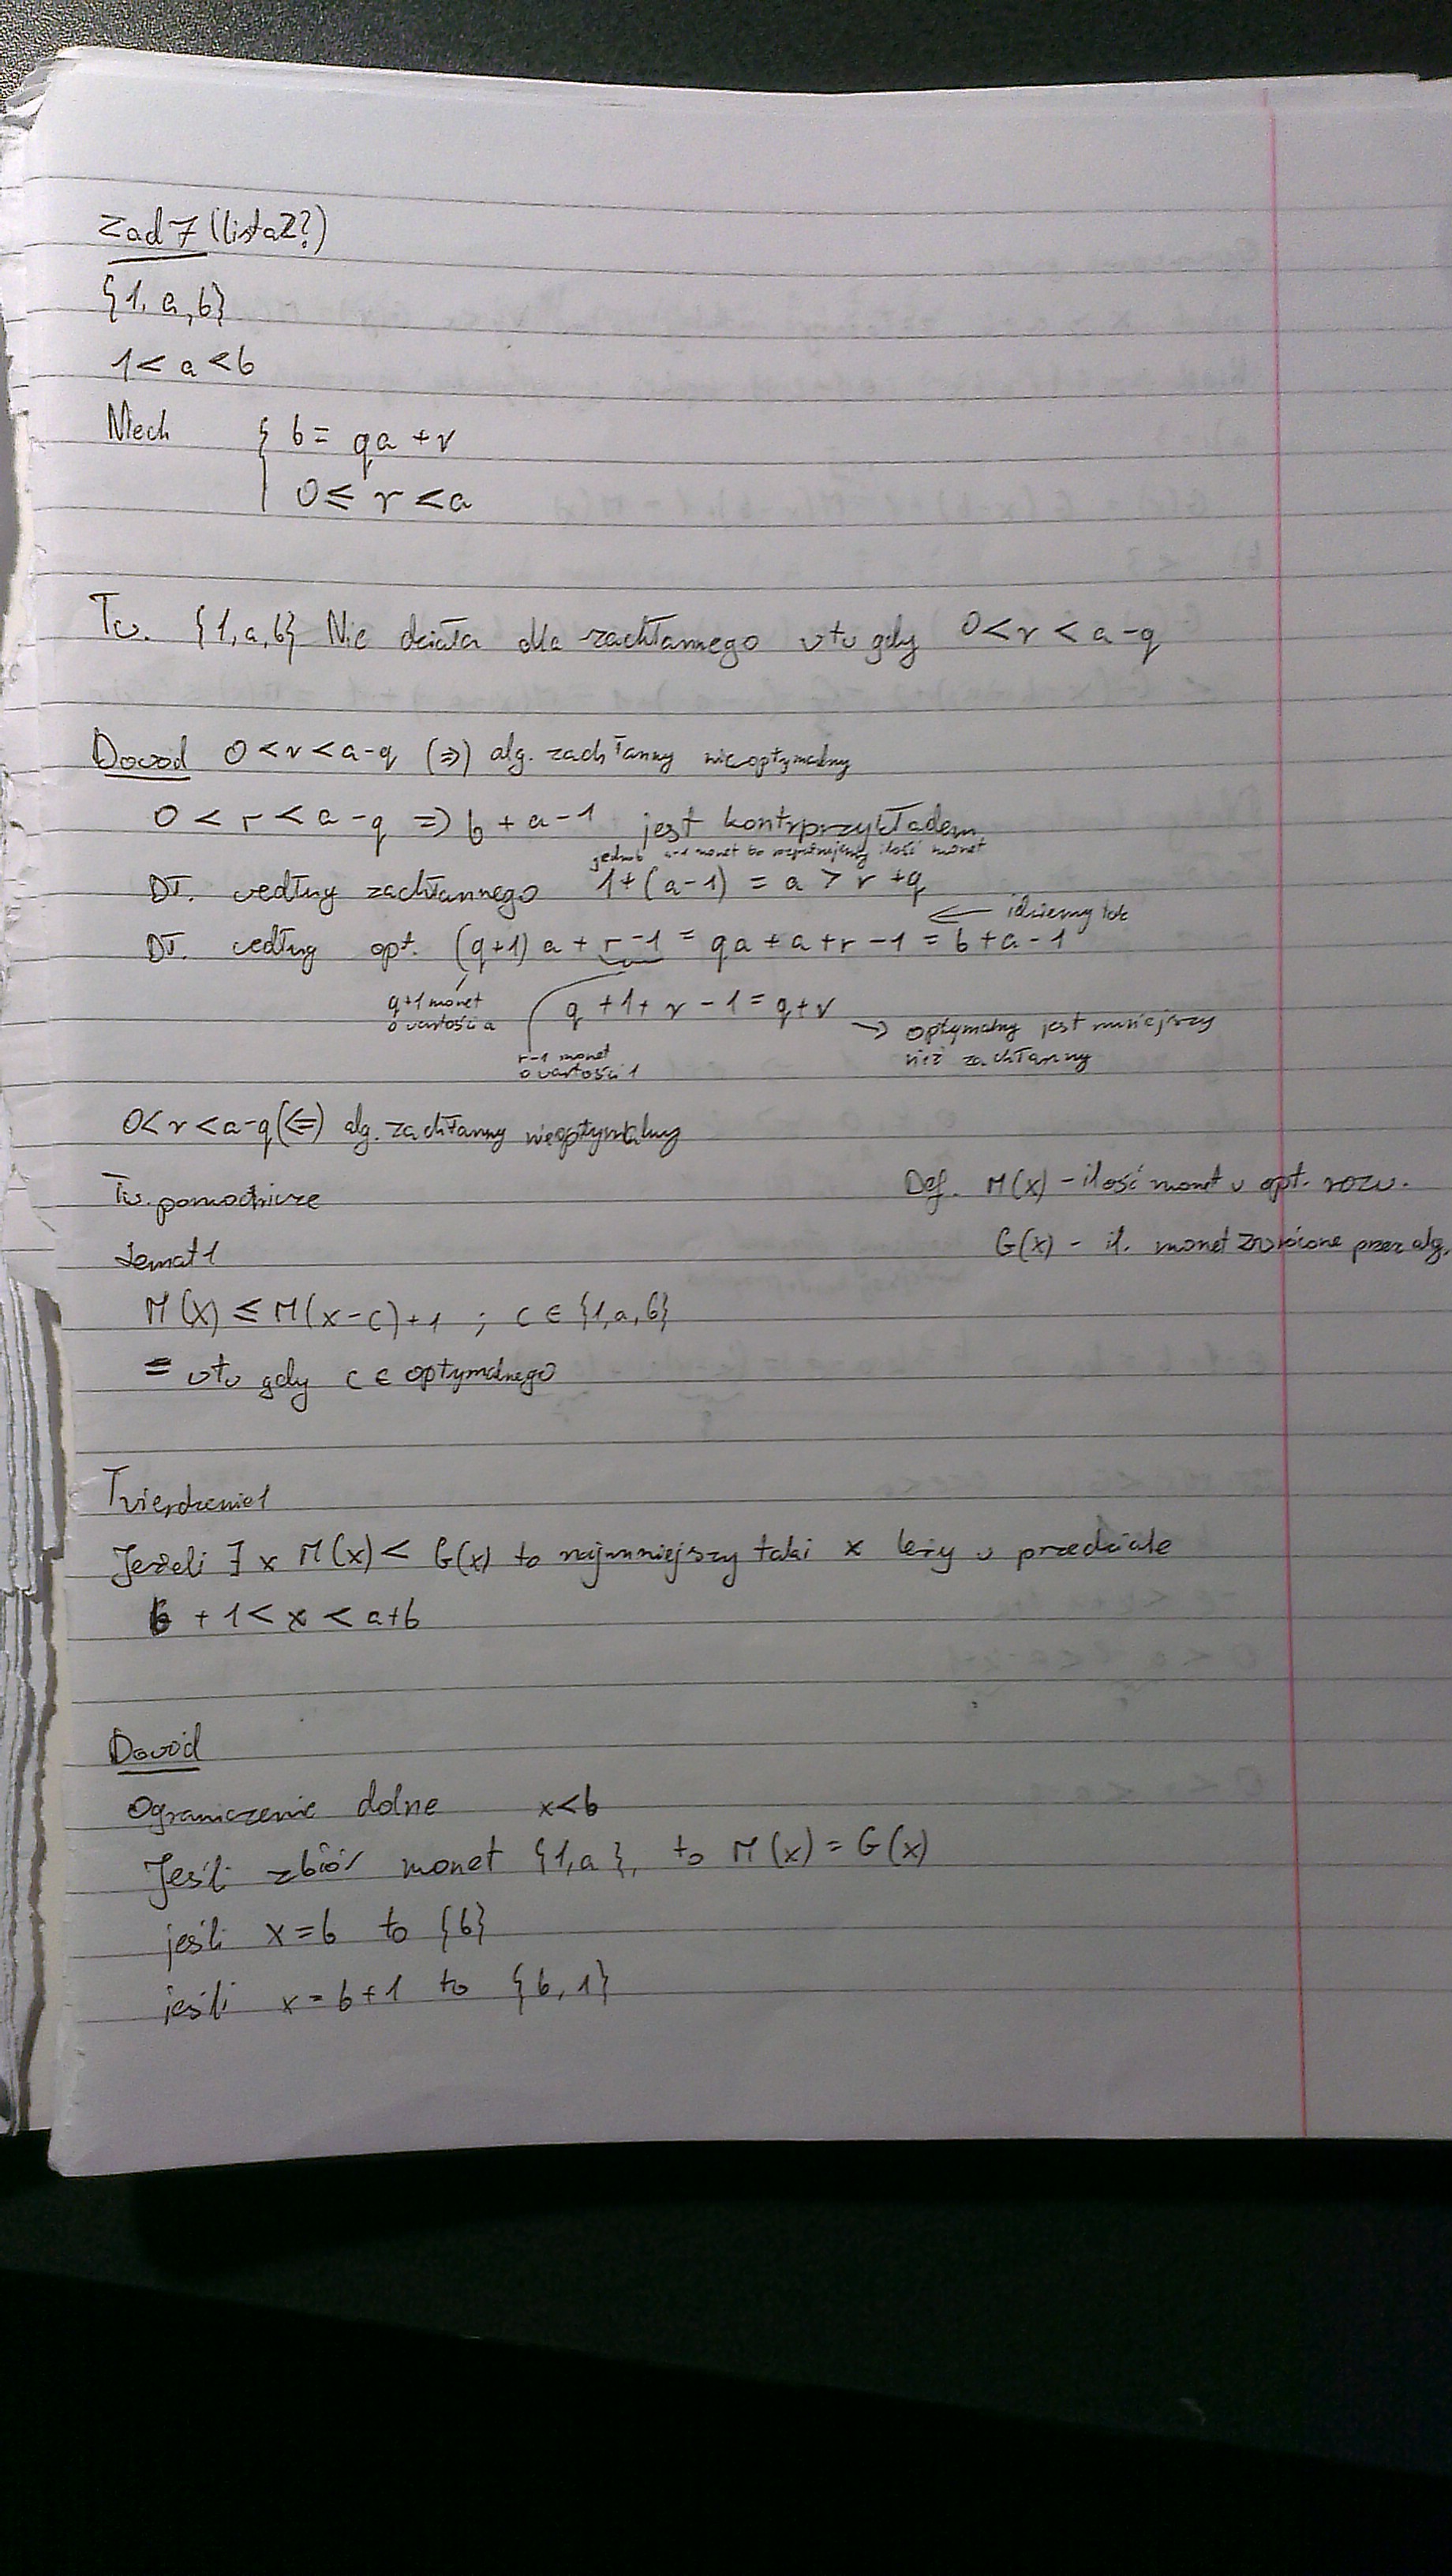 Zad 7 (lista2?)
{1, a, b}
1 < a < b
Niech { b = qa + r
0 ≤ r < a
Tw. {1, a, b} Nie działa dla zachłannego wtw gdy 0 < r < a - q
Dowód 0 < r < a - q (⇒) alg. zachłanny nieoptymalny
0 < r < a - q ⇒ b + a - 1 jest kontrprzykładem
jedno b a-1 monet bo rozpatrujemy ilość monet
Dł. według zachłannego 1 + (a - 1) = a > r + q
← idziemy tak
Dł. według opt. (q+1) a + r - 1 = qa + a + r - 1 = b + a - 1
q+1 monet o wartości a
q + 1 + r - 1 = q + r
→ optymalny jest mniejszy
niż zachłanny
r-1 monet
o wartości 1
0 < r < a - q (⇐) alg. zachłanny nieoptymalny
Tw. pomocnicze
Def. M(x) - ilość monet w opt. rozw.
Lemat 1
G(x) - il. monet zwrócone przez alg.
M(x) ≤ M(x - c) + 1 ; c ∈ {1, a, b}
= wtw gdy c ∈ optymalnego
Twierdzenie 1
Jeżeli ∃ x M(x) < G(x) to najmniejszy taki x leży w przedziale
b + 1 < x < a + b
Dowód
Ograniczenie dolne x < b
Jeśli zbiór monet {1, a}, to M(x) = G(x)
jeśli x = b to {b}
jeśli x = b + 1 to {b, 1}